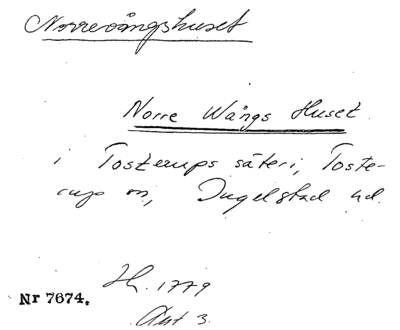 Norrevångshuset
Norre Wångs Huset
i Tosterups säteri, Toste-
rup sn, Ingelstad hd.
Hh. 1779
Nr 7674.
Akt 3.